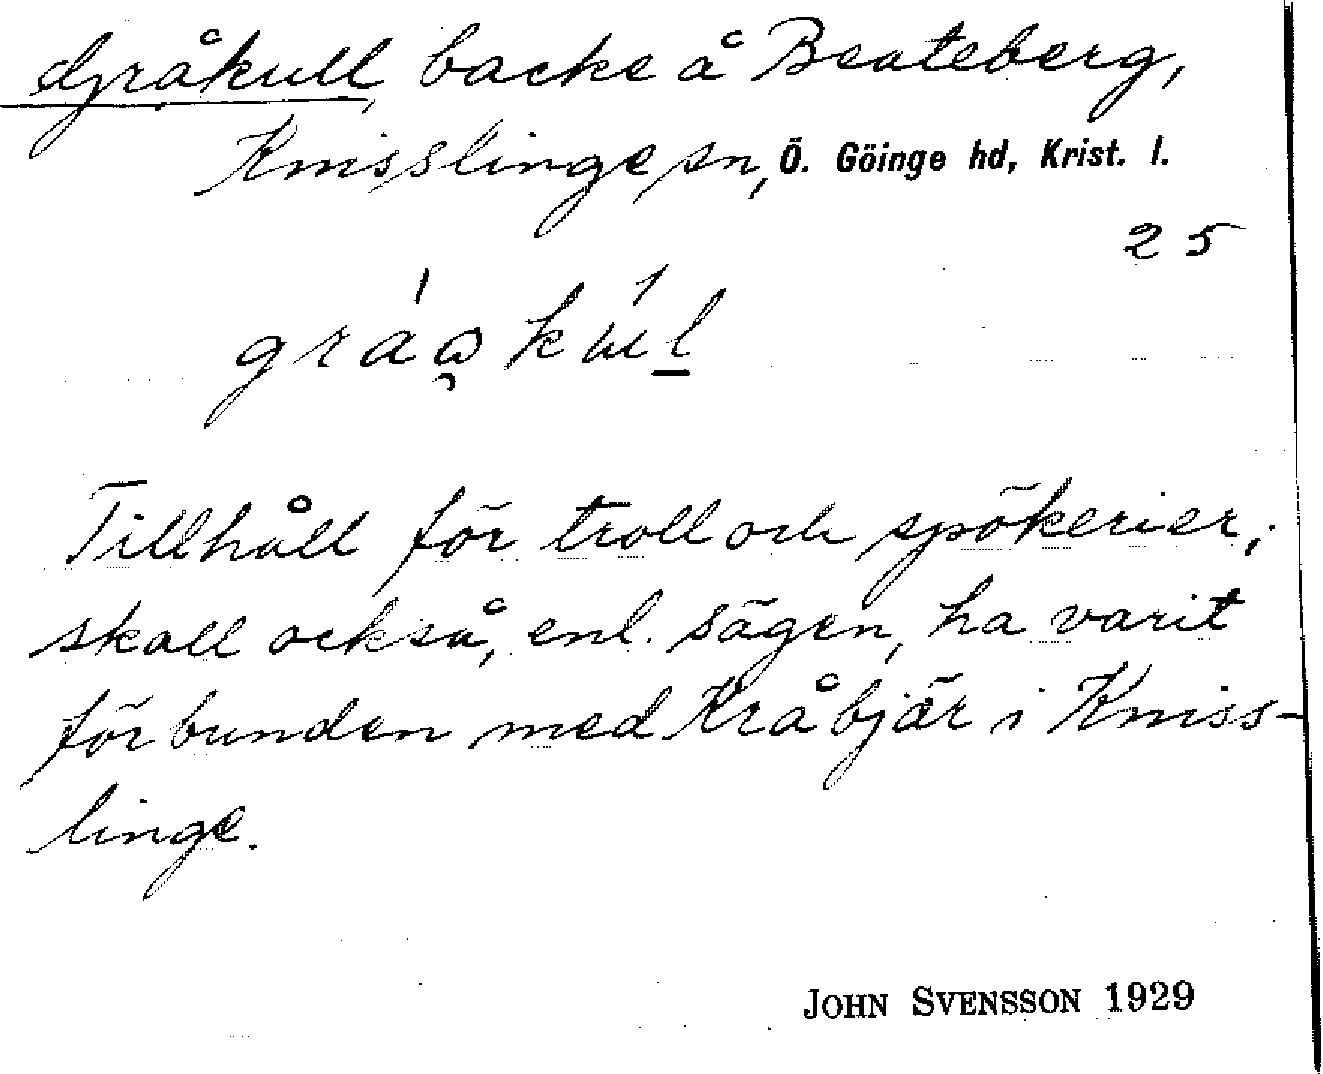 Gråkull, backe å Beateberg,
Knisslinge sn, Ö. Göinge hd, Krist. l.
25
Tillhåll för troll och spökerier;
skall också, enl. sägen, ha varit
förbunden med Kråbjär i Kniss-
linge.
JOHN SVENSSON 1929